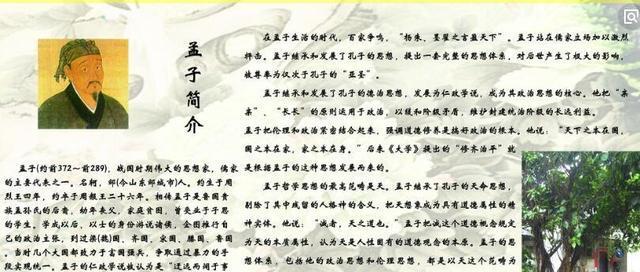 孟子简介
孟子(约前372～前289)，战国时期伟大的思想家，儒家
的主要代表之一。名轲，邹(今山东邹城市)人。约生于周
烈王四年，约卒于周赧王二十六年。相传孟子是鲁国贵
族孟孙氏的后裔，幼年丧父，家庭贫困，曾受业于子思
的学生。学成以后，以士的身份游说诸侯，企图推行自
己的政治主张，到过梁(魏)国、齐国、宋国、滕国、鲁国。
当时几个大国都致力于富国强兵，争取通过暴力的手
段实现统一。孟子的仁政学说被认为是“迂远而阔于事
在孟子生活的时代，百家争鸣，“杨朱、墨翟之言盈天下”。孟子站在儒家立场加以激烈
抨击。孟子继承和发展了孔子的思想，提出一套完整的思想体系，对后世产生了极大的影响，
被尊奉为仅次于孔子的“亚圣”。
孟子继承和发展了孔子的德治思想，发展为仁政学说，成为其政治思想的核心。他把“亲
亲”、“长长”的原则运用于政治，以缓和阶级矛盾，维护封建统治阶级的长远利益。
孟子把伦理和政治紧密结合起来，强调道德修养是搞好政治的根本。他说：“天下之本在国，
国之本在家，家之本在身。”后来《大学》提出的“修齐治平”就
是根据孟子的这种思想发展而来的。
孟子哲学思想的最高范畴是天。孟子继承了孔子的天命思想，
剔除了其中残留的人格神的含义，把天想象成为具有道德属性的精
神实体。他说：“诚者，天之道也。”孟子把诚这个道德概念规定
为天的本质属性，认为天是人性固有的道德观念的本原。孟子的思
想体系，包括他的政治思想和伦理思想，都是以天这个范畴为